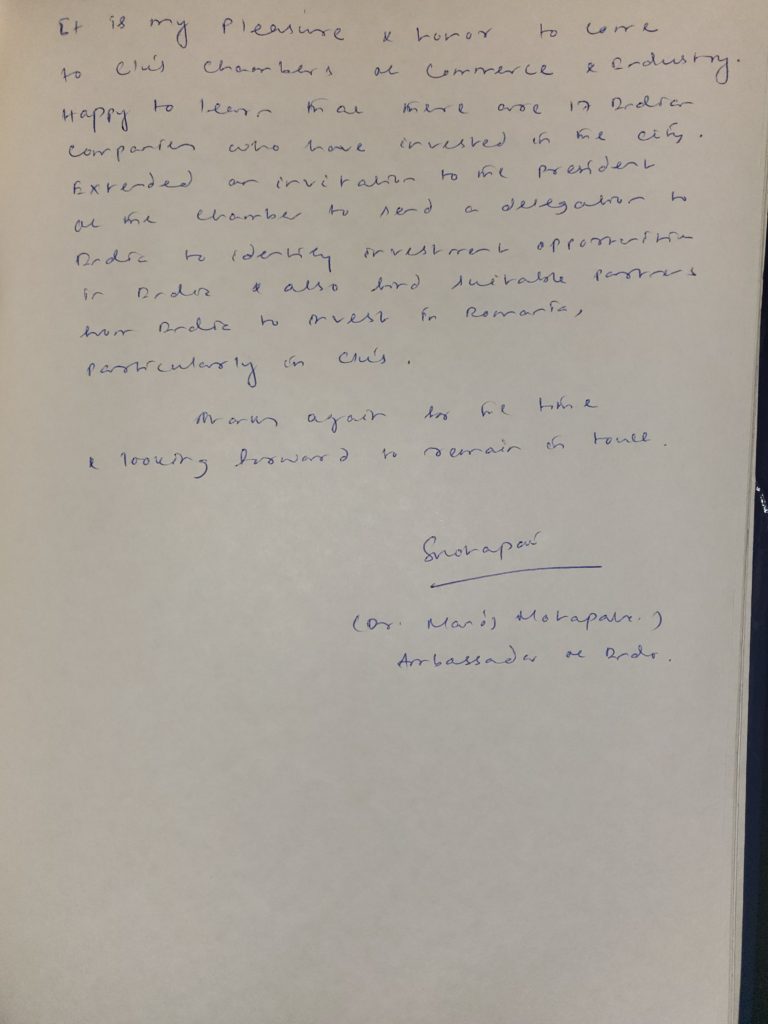 It is my pleasure & honor to come
to Cluj Chambers of Commerce & Industry.
Happy to learn that there are 17 Indian
companies who have invested in the city.
Extended an invitation to the President
of the Chamber to send a delegation to
India to identify investment opportunities
in India & also find suitable partners
from India to invest in Romania,
particularly in Cluj.
Thanks again for the time
& looking forward to remain in touch.
(Dr. Manoj Mohapatra)
Ambassador of India.